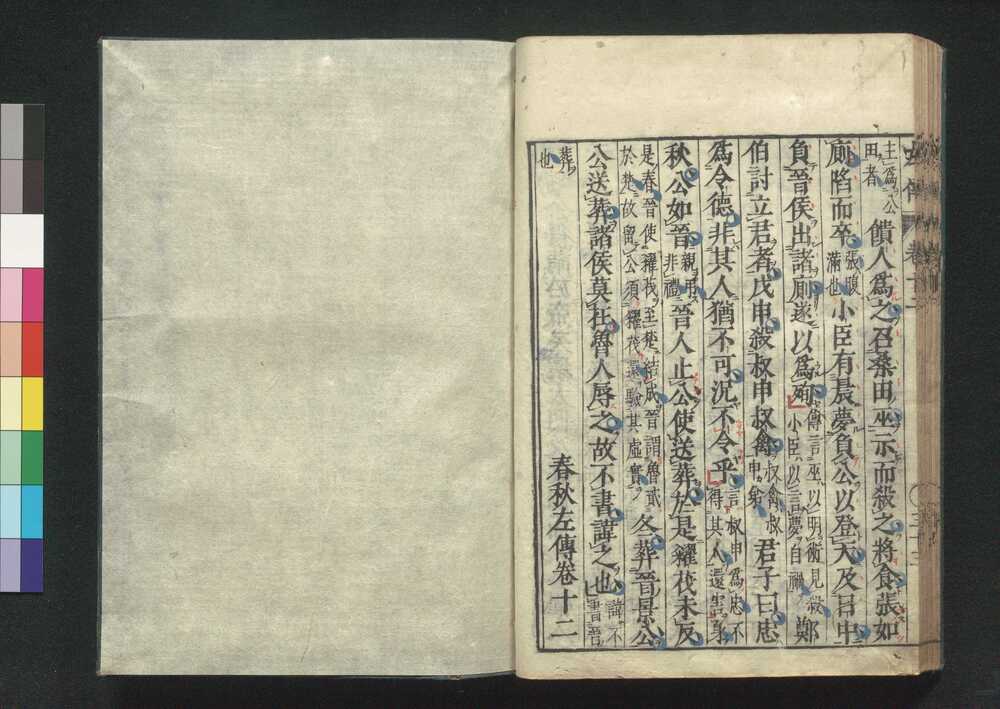 主爲公田者饋人爲之召桑田巫示而殺之將食張如
廁陷而卒張脹滿也小臣有晨夢負公以登天及日中
負晉侯出諸廁遂以爲殉傳言巫以明術見殺小臣以言夢自禍鄭
伯討立君者戊申殺叔申叔禽叔禽叔申弟君子曰忠
爲令德非其人猶不可況不令乎言叔申爲忠不得其人還害身
秋公如晉親弔非禮晉人止公使送葬於是糴茷未反
是春晉使糴茷至楚結成晉謂魯貳於楚故留公須糴茷還驗其虛實冬葬晉景公
公送葬諸侯莫在魯人辱之故不書諱之也諱不書晉
葬也
春秋左傳卷十二